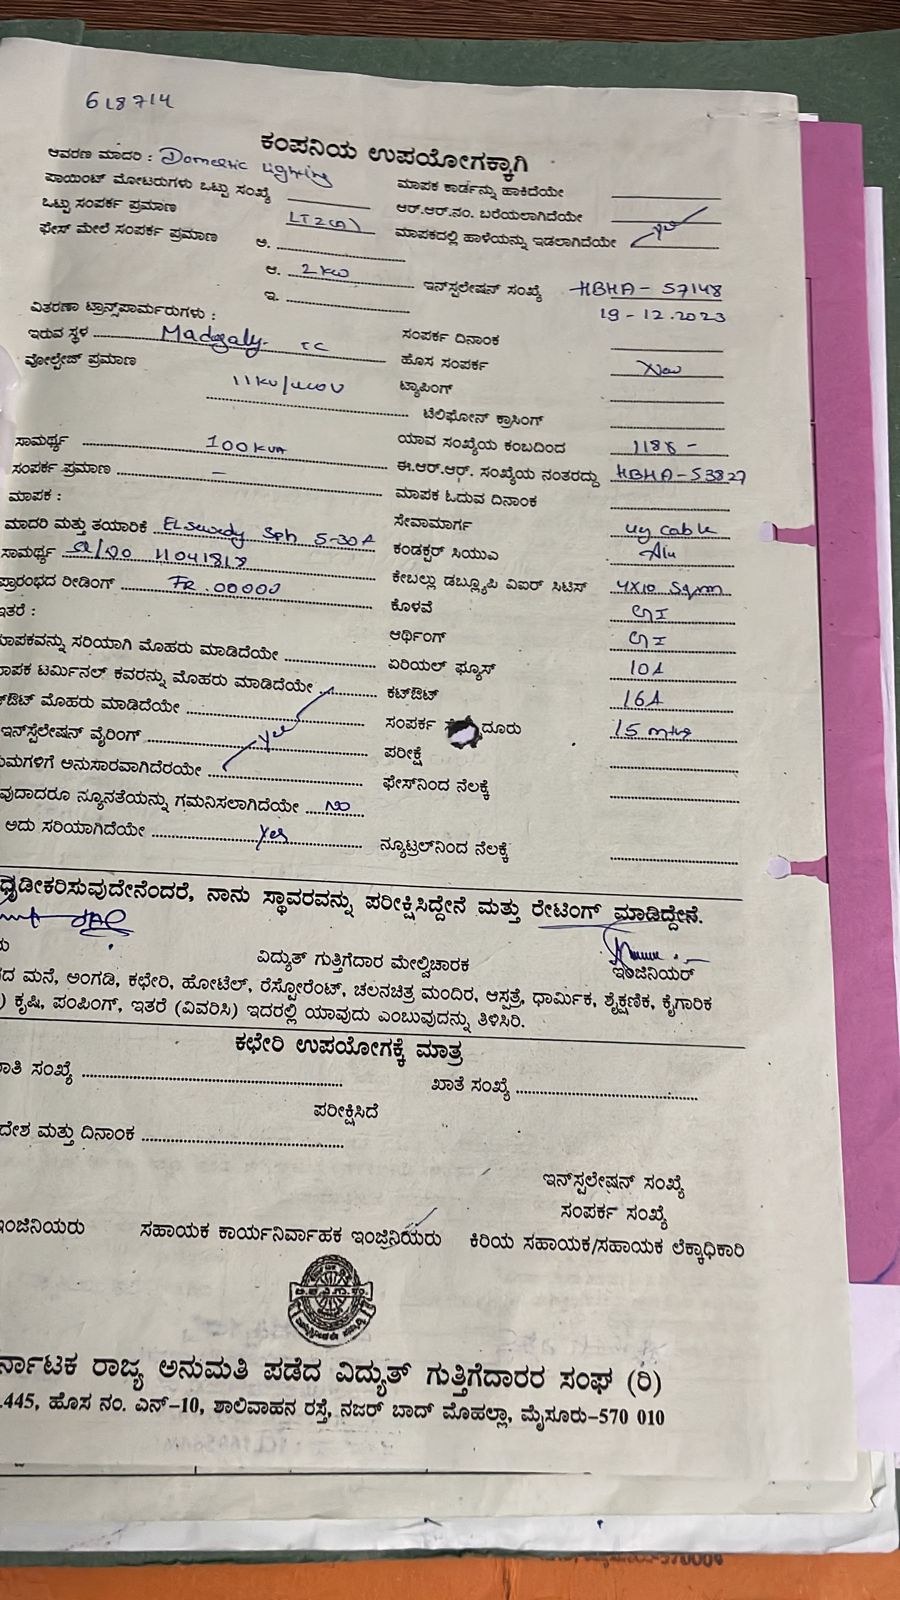 618714
ಕಂಪನಿಯ ಉಪಯೋಗಕ್ಕಾಗಿ
ಆವರಣ ಮಾದರಿ : Domestic Lighting
ಮಾಪಕ ಕಾರ್ಡನ್ನು ಹಾಕಿದೆಯೇ
ಪಾಯಿಂಟ್ ಮೋಟರುಗಳು ಒಟ್ಟು ಸಂಖ್ಯೆ
ಆರ್.ಆರ್.ನಂ. ಬರೆಯಲಾಗಿದೆಯೇ
ಒಟ್ಟು ಸಂಪರ್ಕ ಪ್ರಮಾಣ LT2(a)
ಮಾಪಕದಲ್ಲಿ ಹಾಳೆಯನ್ನು ಇಡಲಾಗಿದೆಯೇ yes
ಫೇಸ್ ಮೇಲೆ ಸಂಪರ್ಕ ಪ್ರಮಾಣ ಅ.
ಆ. 2 KW
ಇನ್‌ಸ್ಪಲೇಷನ್ ಸಂಖ್ಯೆ HBHA - 57148
ಇ.
19-12.2023
ವಿತರಣಾ ಟ್ರಾನ್ಸ್‌ಪಾರ್ಮರುಗಳು :
ಸಂಪರ್ಕ ದಿನಾಂಕ
ಇರುವ ಸ್ಥಳ
ಹೊಸ ಸಂಪರ್ಕ New
ವೋಲ್ಟೇಜ್ ಪ್ರಮಾಣ 11KV/
ಟ್ಯಾಪಿಂಗ್
ಟೆಲಿಫೋನ್ ಕ್ರಾಸಿಂಗ್
ಸಾಮರ್ಥ್ಯ 100 KVA
ಯಾವ ಸಂಖ್ಯೆಯ ಕಂಬದಿಂದ
ಸಂಪರ್ಕ ಪ್ರಮಾಣ -
ಈ.ಆರ್.ಆರ್. ಸಂಖ್ಯೆಯ ನಂತರದ್ದು HBHA-53827
ಮಾಪಕ :
ಮಾಪಕ ಓದುವ ದಿನಾಂಕ
ಮಾದರಿ ಮತ್ತು ತಯಾರಿಕೆ 5-30A
ಸೇವಾಮಾರ್ಗ ug cable
ಸಾಮರ್ಥ್ಯ 11041818
ಕಂಡಕ್ಟರ್ ಸಿಯುಎ Alu
ಪ್ರಾರಂಭದ ರೀಡಿಂಗ್
ಕೇಬಲ್ಲು ಡಬ್ಲ್ಯೂಪಿ ವಿಐಆರ್ ಸಿಟಿಸ್ 4X10 Sqmm
ಇತರೆ :
ಕೊಳವೆ GI
ಮಾಪಕವನ್ನು ಸರಿಯಾಗಿ ಮೊಹರು ಮಾಡಿದೆಯೇ
ಆರ್ಥಿಂಗ್ GI
ಮಾಪಕ ಟರ್ಮಿನಲ್ ಕವರನ್ನು ಮೊಹರು ಮಾಡಿದೆಯೇ
ಏರಿಯಲ್ ಫ್ಯೂಸ್ 10A
ಮೊಹರು ಮಾಡಿದೆಯೇ
ಕಟ್‌ಔಟ್ 16A
ಇನ್‌ಸ್ಪೆಲೇಷನ್ ವೈರಿಂಗ್ yes
ಸಂಪರ್ಕ ದೂರು 15 mtrs
ಅನುಸಾರವಾಗಿದೆರೆಯೇ
ಪರೀಕ್ಷೆ
ನ್ಯೂನತೆಯನ್ನು ಗಮನಿಸಲಾಗಿದೆಯೇ No
ಫೇಸ್‌ನಿಂದ ನೆಲಕ್ಕೆ
ಅದು ಸರಿಯಾಗಿದೆಯೇ Yes
ನ್ಯೂಟ್ರಲ್‌ನಿಂದ ನೆಲಕ್ಕೆ
ಧೃಡೀಕರಿಸುವುದೇನೆಂದರೆ, ನಾನು ಸ್ಥಾವರವನ್ನು ಪರೀಕ್ಷಿಸಿದ್ದೇನೆ ಮತ್ತು ರೇಟಿಂಗ್ ಮಾಡಿದ್ದೇನೆ.
ವಿದ್ಯುತ್ ಗುತ್ತಿಗೆದಾರ ಮೇಲ್ವಿಚಾರಕ
ಇಂಜಿನಿಯರ್
ಮನೆ, ಅಂಗಡಿ, ಕಛೇರಿ, ಹೋಟೆಲ್, ರೆಸ್ಟೋರೆಂಟ್, ಚಲನಚಿತ್ರ ಮಂದಿರ, ಆಸ್ಪತ್ರೆ, ಧಾರ್ಮಿಕ, ಶೈಕ್ಷಣಿಕ, ಕೈಗಾರಿಕ
) ಕೃಷಿ, ಪಂಪಿಂಗ್, ಇತರೆ (ವಿವರಿಸಿ) ಇದರಲ್ಲಿ ಯಾವುದು ಎಂಬುವುದನ್ನು ತಿಳಿಸಿರಿ.
ಕಛೇರಿ ಉಪಯೋಗಕ್ಕೆ ಮಾತ್ರ
ಸಂಖ್ಯೆ
ಖಾತೆ ಸಂಖ್ಯೆ
ಪರೀಕ್ಷಿಸಿದೆ
ಮತ್ತು ದಿನಾಂಕ
ಇನ್‌ಸ್ಪಲೇಷನ್ ಸಂಖ್ಯೆ
ಸಂಪರ್ಕ ಸಂಖ್ಯೆ
ಇಂಜಿನಿಯರು ಸಹಾಯಕ ಕಾರ್ಯನಿರ್ವಾಹಕ ಇಂಜಿನಿಯರು ಕಿರಿಯ ಸಹಾಯಕ/ಸಹಾಯಕ ಲೆಕ್ಕಾಧಿಕಾರಿ
ರ್ನಾಟಕ ರಾಜ್ಯ ಅನುಮತಿ ಪಡೆದ ವಿದ್ಯುತ್ ಗುತ್ತಿಗೆದಾರರ ಸಂಘ (ರಿ)
.445, ಹೊಸ ನಂ. ಎನ್-10, ಶಾಲಿವಾಹನ ರಸ್ತೆ, ನಜರ್ ಬಾದ್ ಮೊಹಲ್ಲಾ, ಮೈಸೂರು-570 010